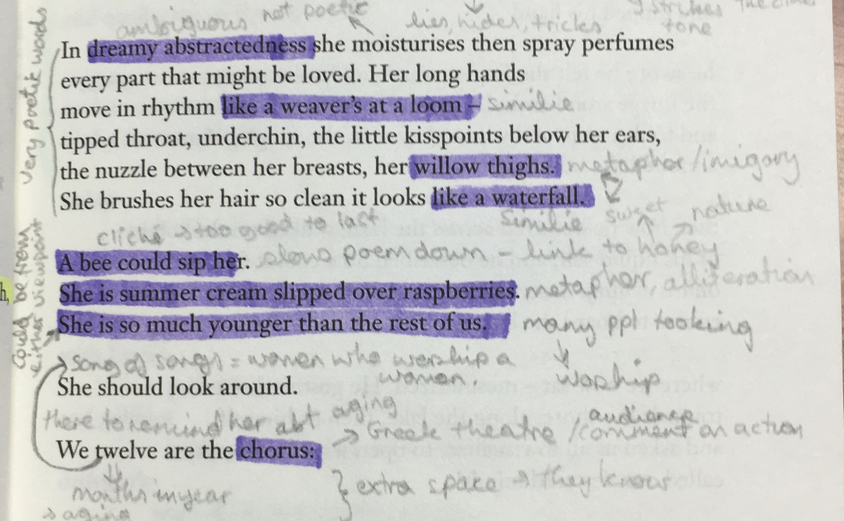 ambiguous not poetic
lies, hides, tricks
strikes the
tone
very poetic words
In dreamy abstractedness she moisturises then spray perfumes
every part that might be loved. Her long hands
move in rhythm like a weaver's at a loom – similie
tipped throat, underchin, the little kisspoints below her ears,
the nuzzle between her breasts, her willow thighs. metaphor/imigary
She brushes her hair so clean it looks like a waterfall.
similie sweet nature
cliché → too good to last
A bee could sip her. slows poem down – link to honey
She is summer cream slipped over raspberries. metaphor, alliteration
She is so much younger than the rest of us. many ppl looking
could be from
either viewpoint
h,
song of songs = women who worship a
women.
worship
She should look around.
there to remind her abt aging
audience
We twelve are the chorus: → Greek theatre / comment on action
months in year
→ aging
extra space → they know